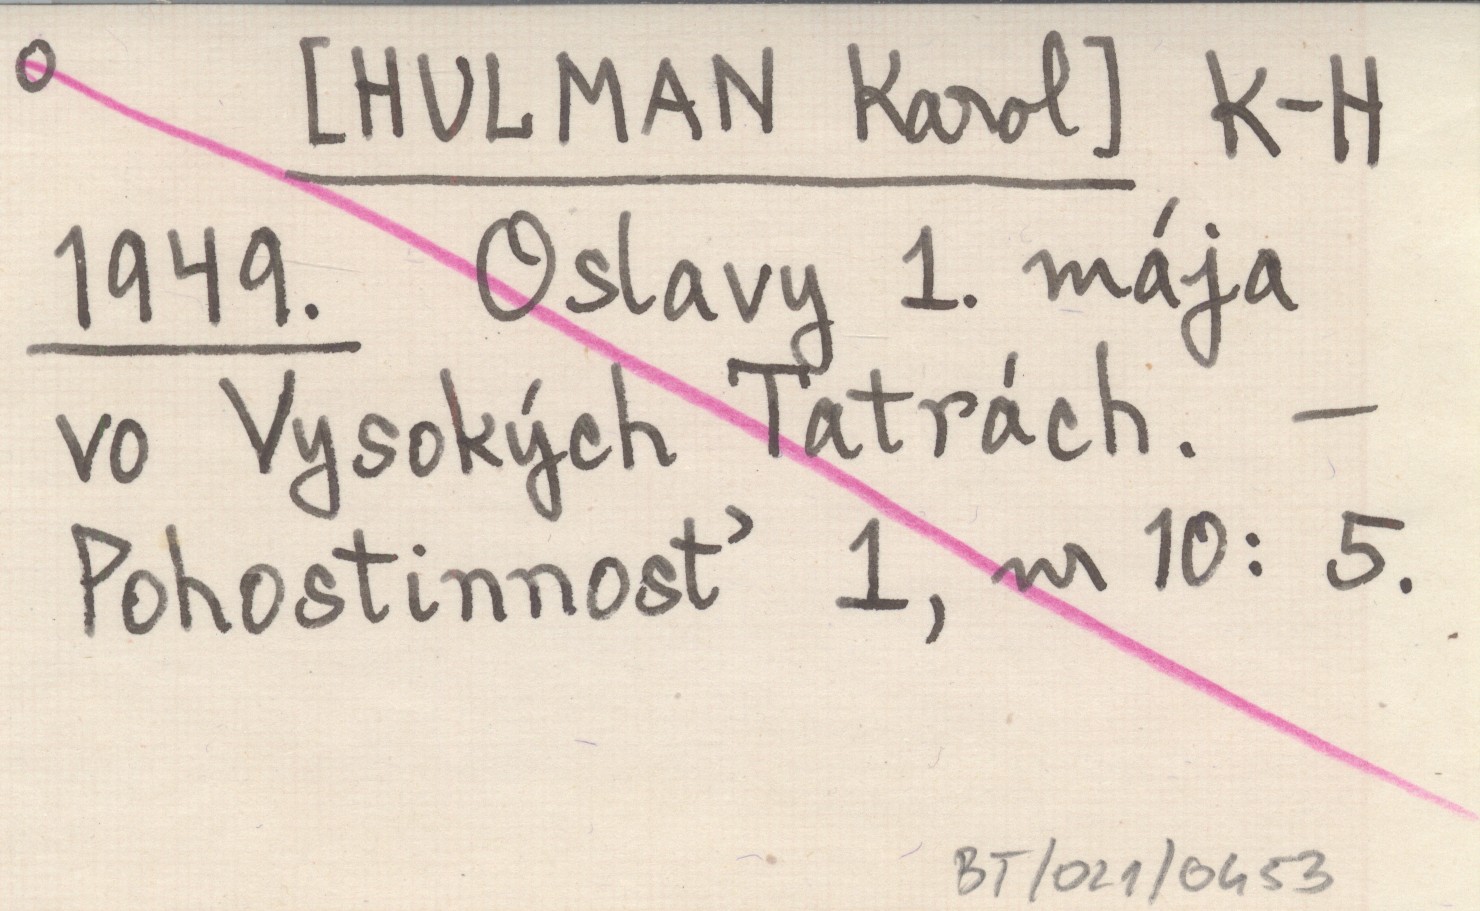 O [HULMAN Karol] K-H
1949. Oslavy 1. mája
vo Vysokých Tatrách. —
Pohostinnosť 1, nr 10: 5.
BT/021/0453